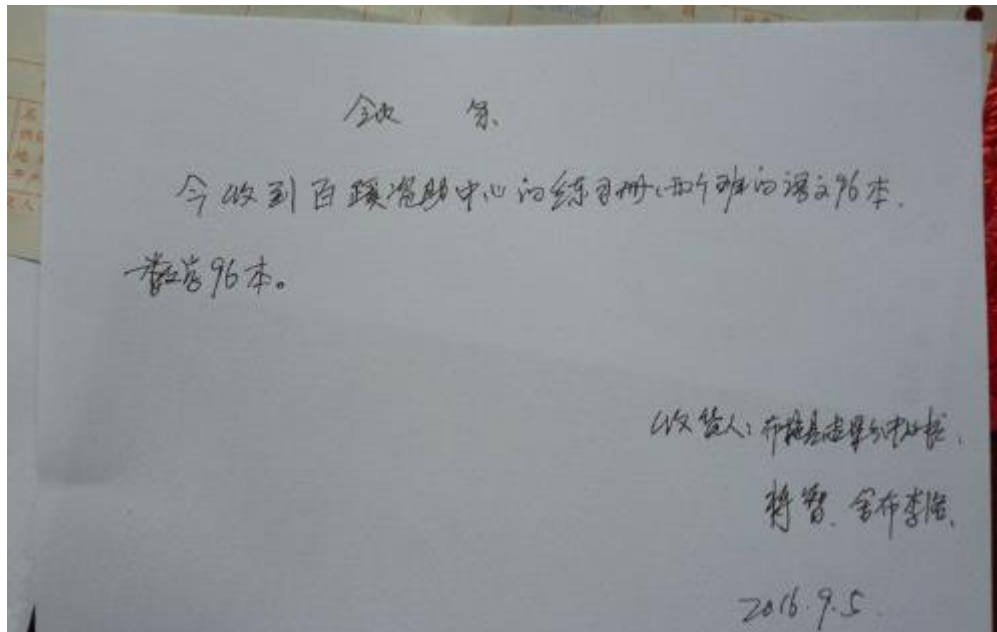 收 条
今收到百蹊资助中心的练习册,两个班的语文96本.
数学96本。
收货人:布拖县
将智. 舍布李
2016.9.5.